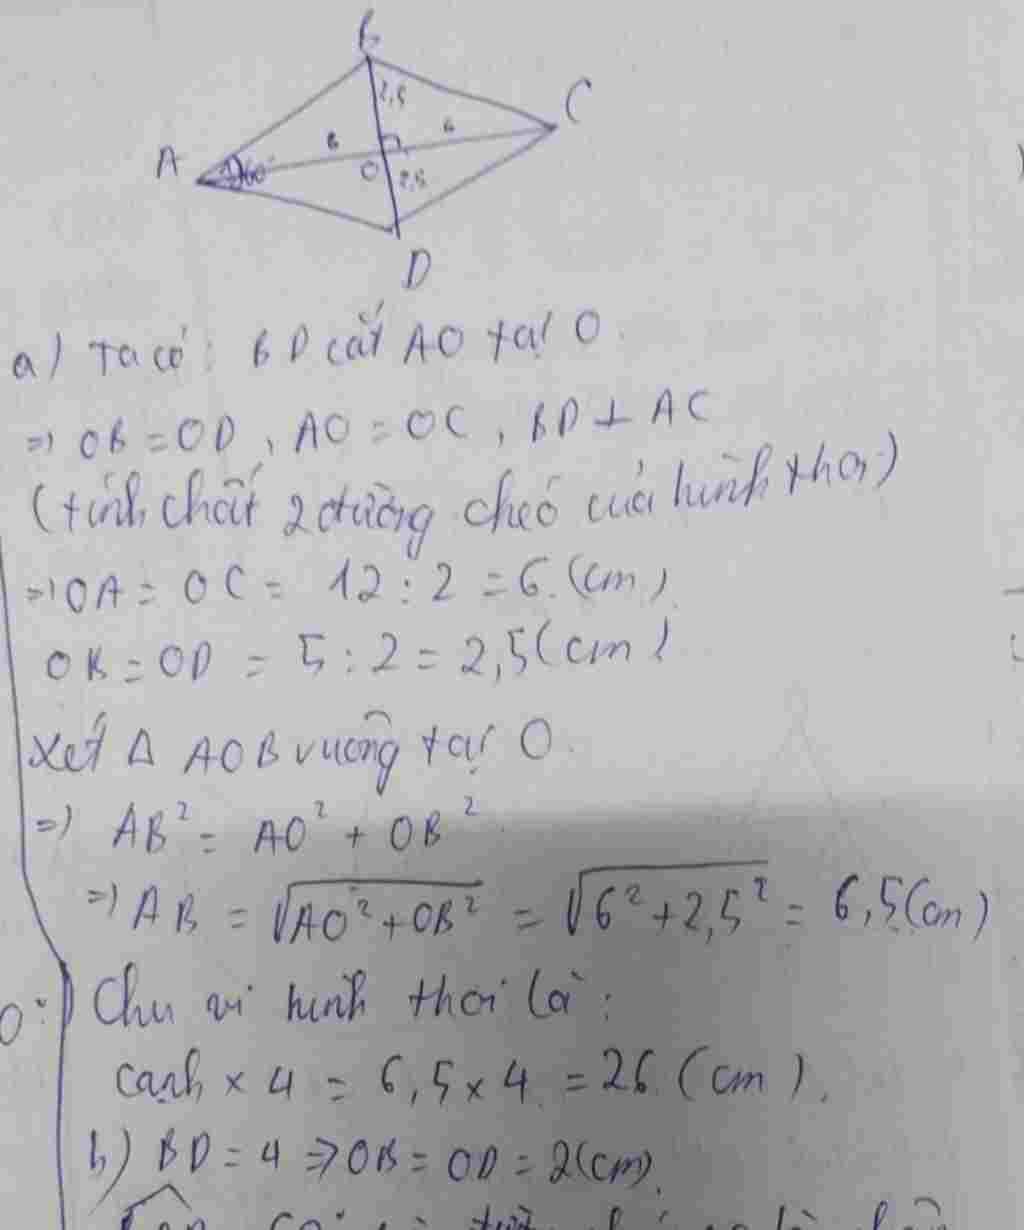 B
2,5
C
A
6
6
60°
O
2,5
D
a) Ta có : BD cắt AO tại O.
=> OB = OD , AO = OC , BD ⊥ AC
(tính chất 2 đường chéo của hình thoi)
=> OA = OC = 12 : 2 = 6 (cm)
OB = OD = 5 : 2 = 2,5 (cm)
Xét Δ AOB vuông tại O.
=> AB² = AO² + OB²
=> AB = √AO² + OB² = √6² + 2,5² = 6,5 (cm)
=> Chu vi hình thoi là :
cạnh × 4 = 6,5 × 4 = 26 (cm).
b) BD = 4 => OB = OD = 2 (cm).